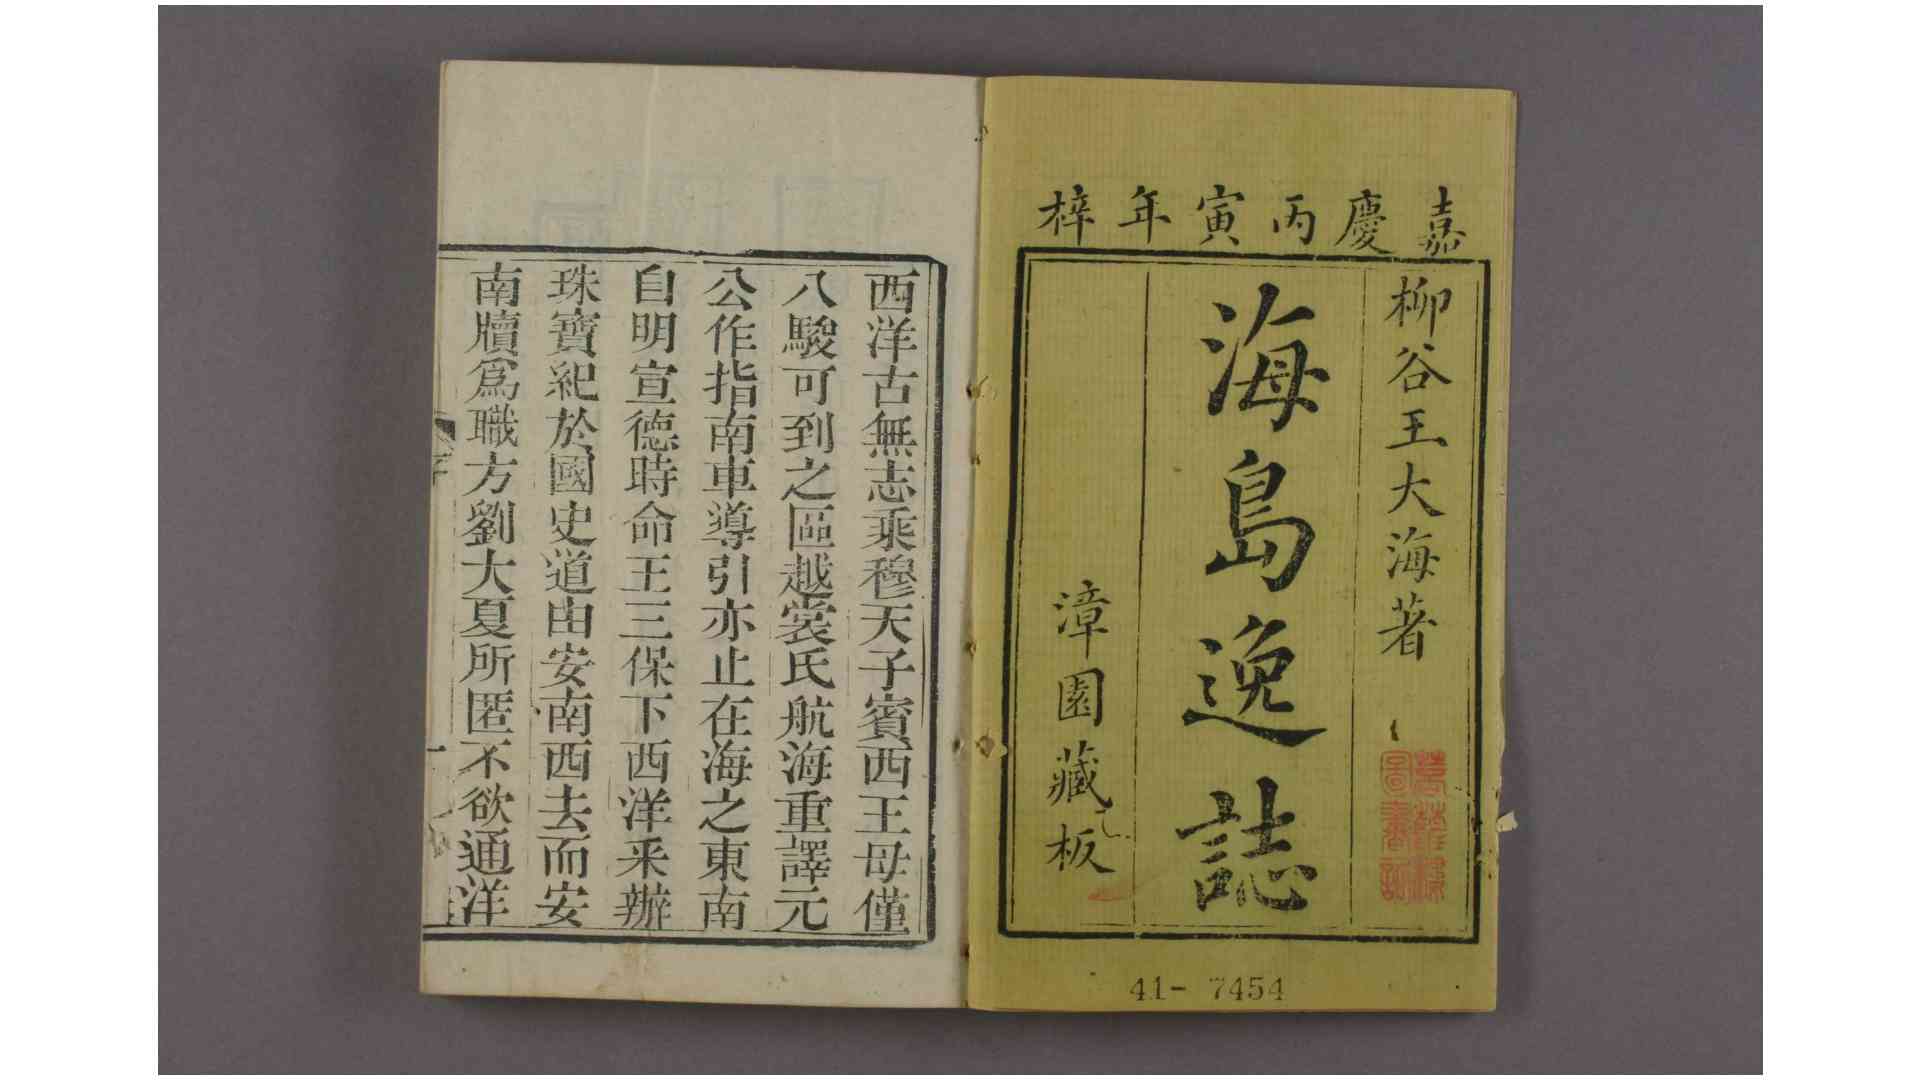 嘉慶丙寅年梓
柳谷王大海著
海島逸誌
漳園藏板
41- 7454
西洋古無志乘穆天子賓西王母僅
八駿可到之區越裳氏航海重譯元
公作指南車導引亦止在海之東南
自明宣德時命王三保下西洋采辦
珠寶紀於國史道由安南西去而安
南牘爲職方劉大夏所匿不欲通洋